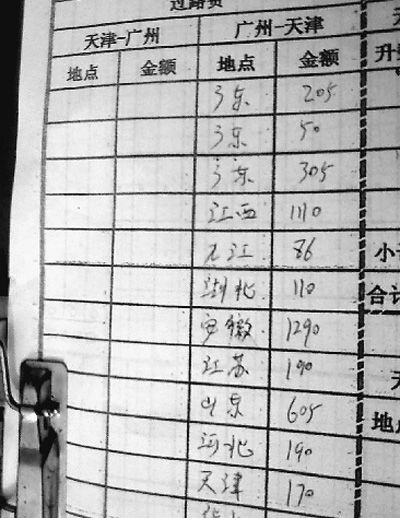 过路费
天津-广州 广州-天津
地点 金额 地点 金额 升
广东 205
广东 50
广东 305
江西 1110
九江 86 小计
湖北 110 合计
安徽 1290
江苏 190
山东 605
河北 190 地点
天津 170